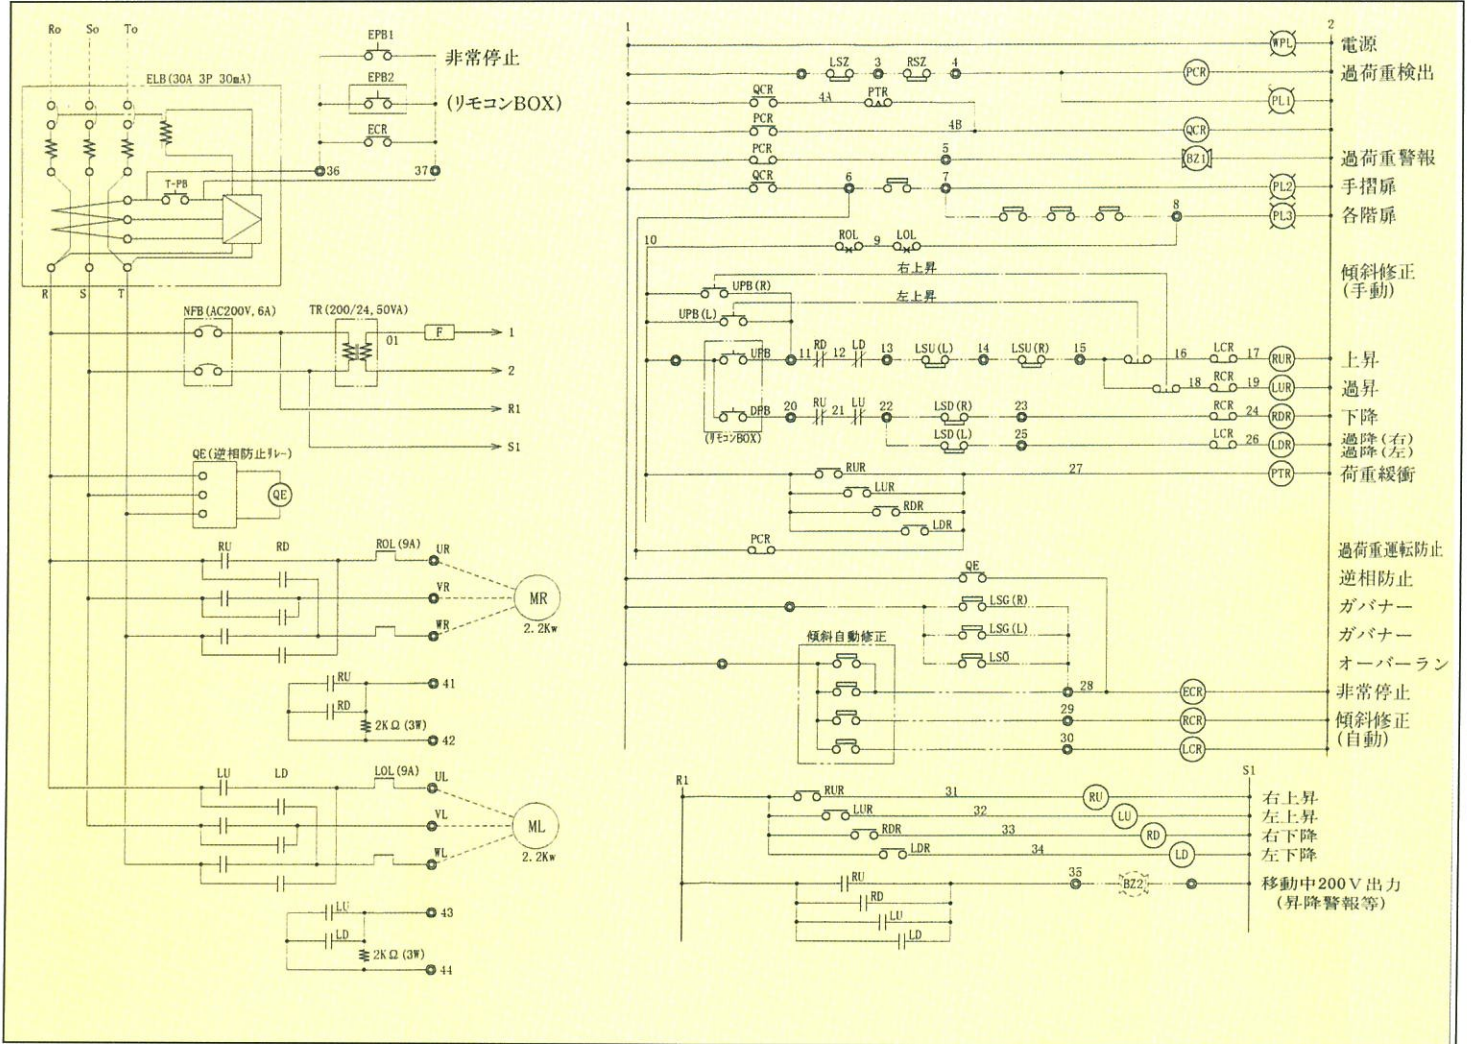 Ro So To
EPB1
非常停止
ELB(30A 3P 30mA)
EPB2
(リモコンBOX)
ECR
36
37
T-PB
R S T
NFB(AC200V, 6A)
TR(200/24, 50VA)
01
F
1
2
R1
S1
QE(逆相防止リレー)
QE
RU RD ROL(9A) UR
VR
MR
WR
2.2Kw
RU
41
RD
2KΩ(3W)
42
LU LD LOL(9A) UL
VL
ML
WL
2.2Kw
LU
43
LD
2KΩ(3W)
44
1
2
WPL
電源
LSZ 3 RSZ 4
PCR
過荷重検出
QCR 4A PTR
PL1
PCR 4B
QCR
PCR 5
BZ1
過荷重警報
QCR 6 7
PL2
手摺扉
8
PL3
各階扉
10 ROL 9 LOL
右上昇
傾斜修正
(手動)
UPB(R)
左上昇
UPB(L)
UPB 11 RD 12 LD 13 LSU(L) 14 LSU(R) 15 16 LCR 17 RUR
上昇
18 RCR 19 LUR
過昇
DPB 20 RU 21 LU 22 LSD(R) 23 RCR 24 RDR
下降
(リモコンBOX)
LSD(L) 25 LCR 26 LDR
過降(右)
過降(左)
RUR 27 PTR
荷重緩衝
LUR
RDR
LDR
PCR
過荷重運転防止
QE
逆相防止
LSG(R)
ガバナー
傾斜自動修正
LSG(L)
ガバナー
LSO
オーバーラン
28 ECR
非常停止
29 RCR
傾斜修正
(自動)
30 LCR
R1
S1
RUR 31 RU
右上昇
LUR 32 LU
左上昇
RDR 33 RD
右下降
LDR 34 LD
左下降
RU 35 BZ2
移動中200V出力
(昇降警報等)
RD
LU
LD